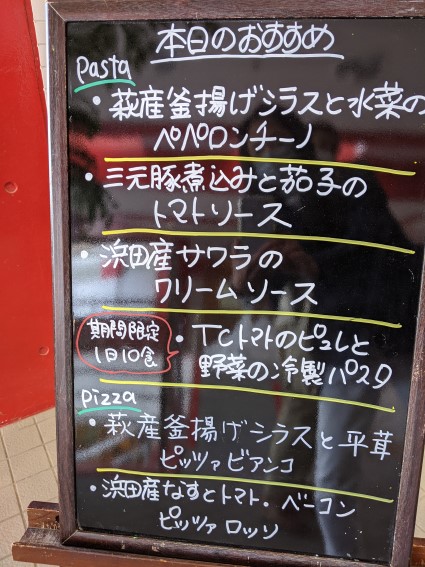 本日のおすすめ
pasta
・萩産釜揚げシラスと水菜の
ペペロンチーノ
・三元豚煮込みと茄子の
トマトソース
・浜田産サワラの
クリームソース
期間限定
1日10食
・TCトマトのピュレと
野菜の冷製パスタ
pizza
・萩産釜揚げシラスと平茸
ピッツァビアンコ
・浜田産なすとトマト.ベーコン
ピッツァロッソ